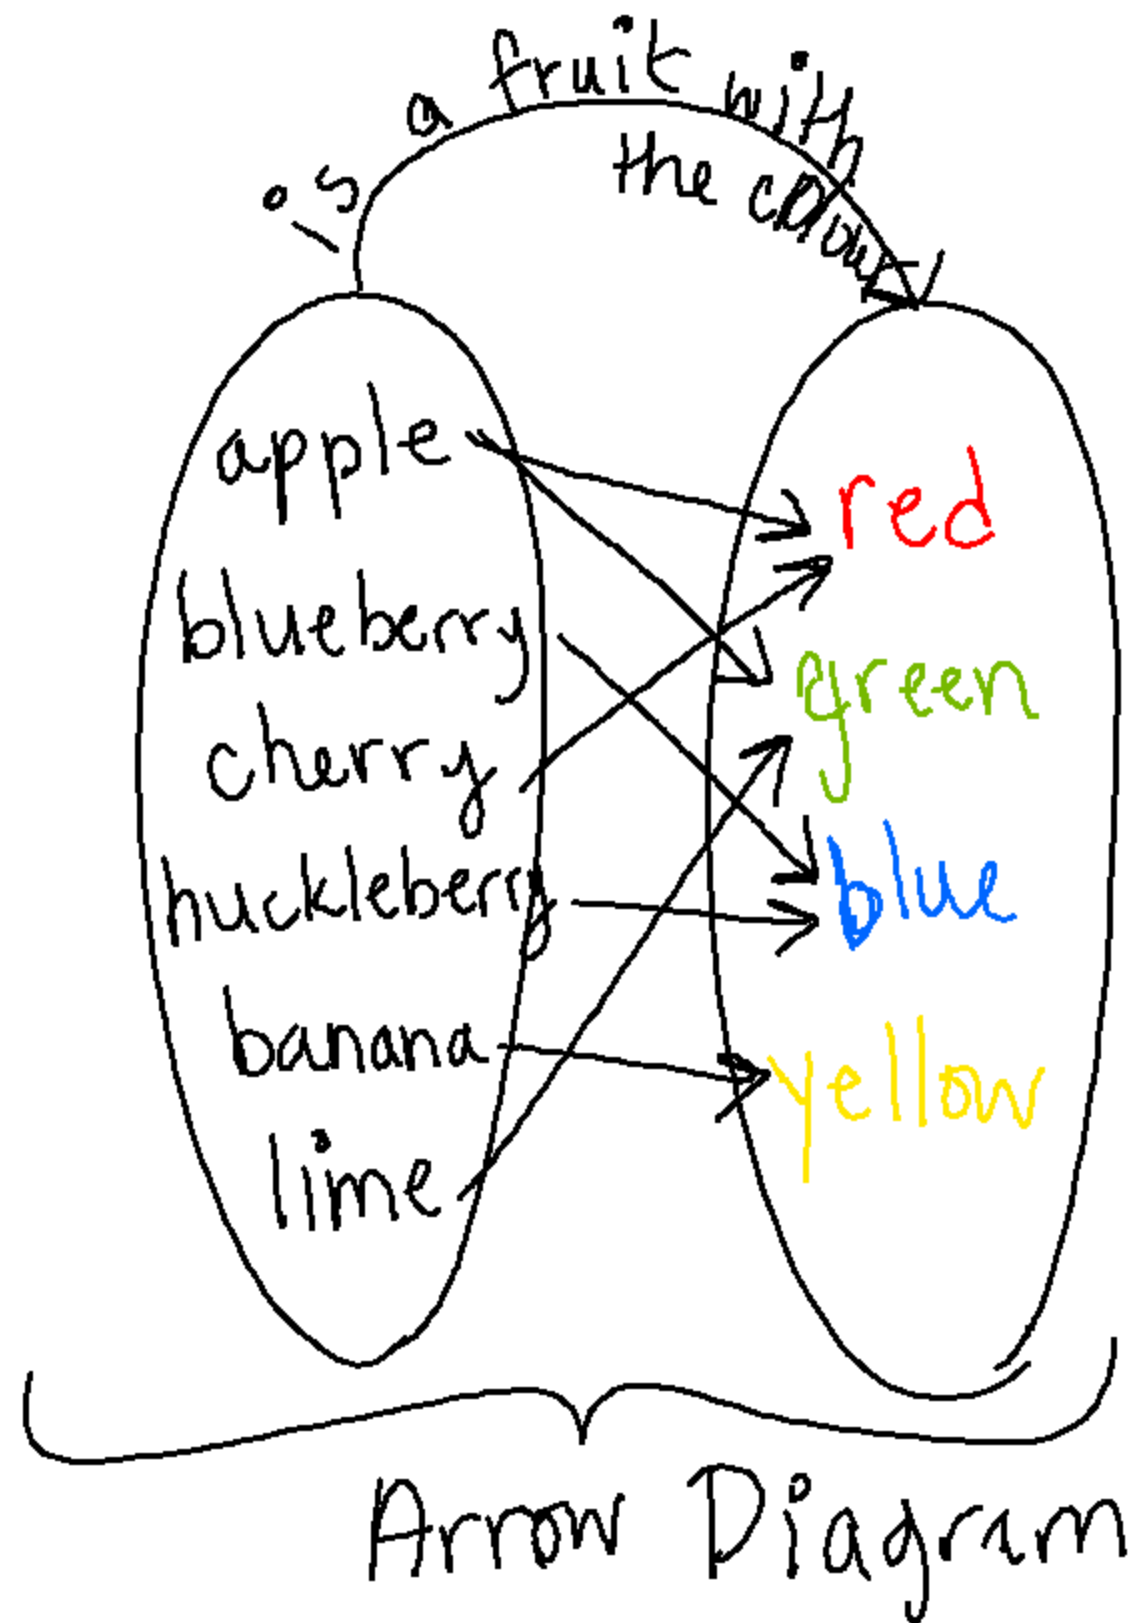 is a fruit with
the colour
apple
blueberry
cherry
huckleberry
banana
lime
red
green
blue
yellow
Arrow Diagram